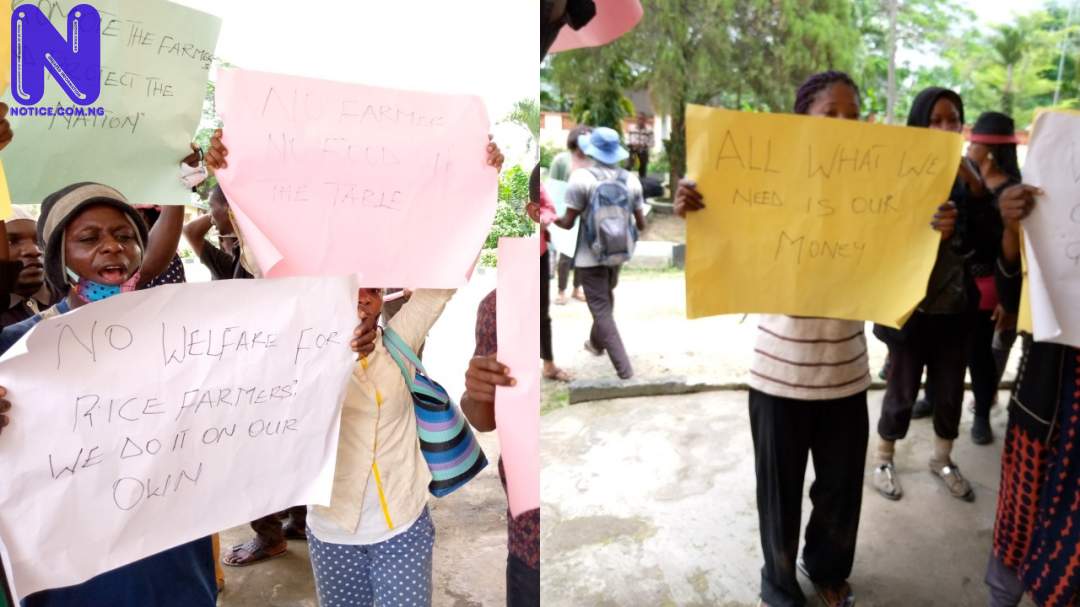 N
NOTICE.COM.NG
THE FARMER
PROTECT THE
NATION"
NO FARMER
NO FOOD
THE TABLE
NO WELFARE FOR
RICE FARMERS!
WE DO IT ON OUR
OWN
ALL WHAT WE
NEED IS OUR
MONEY